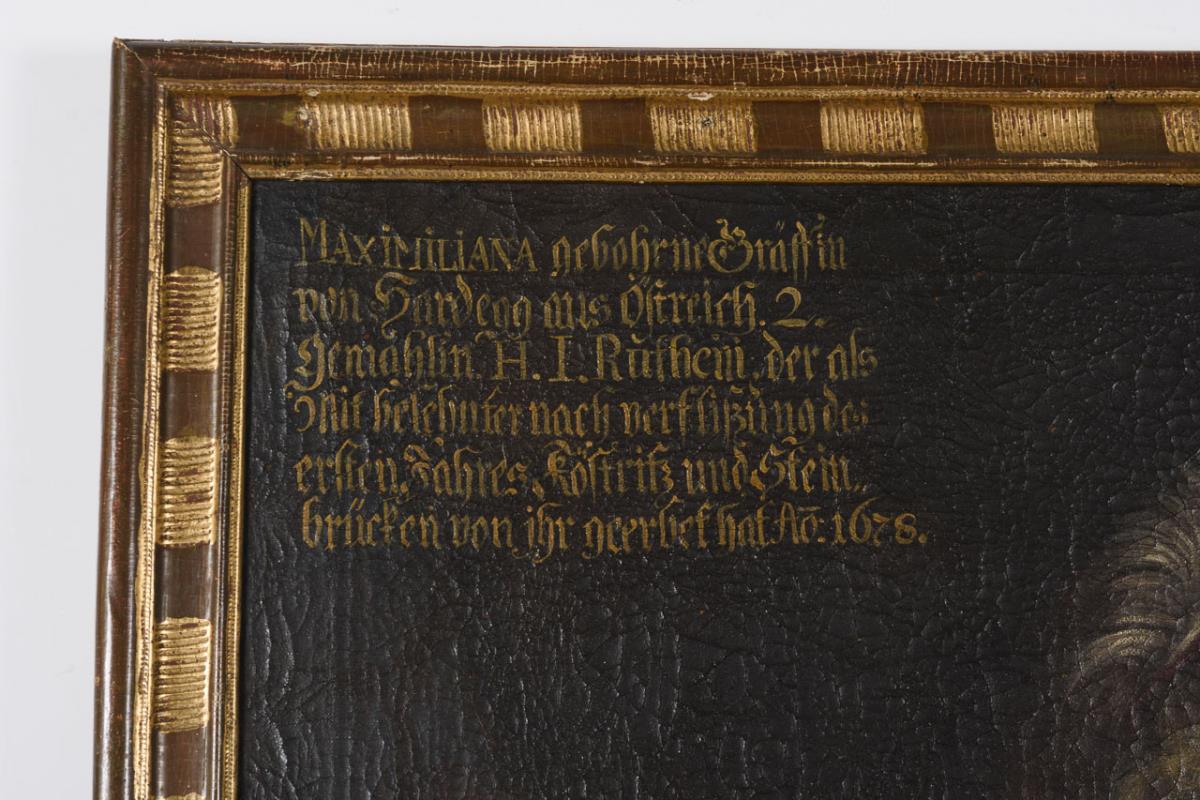 MAXIMILIANA gebohrne Gräffin
von Hardegg aus Östreich. 2.
Gemahlin H. I. Rüthein, der als
Mit belehnter nach verfließung des
ersten Jahres, Köstritz und Stein„
brücken von jhr geerbet hat Ao: 1678.